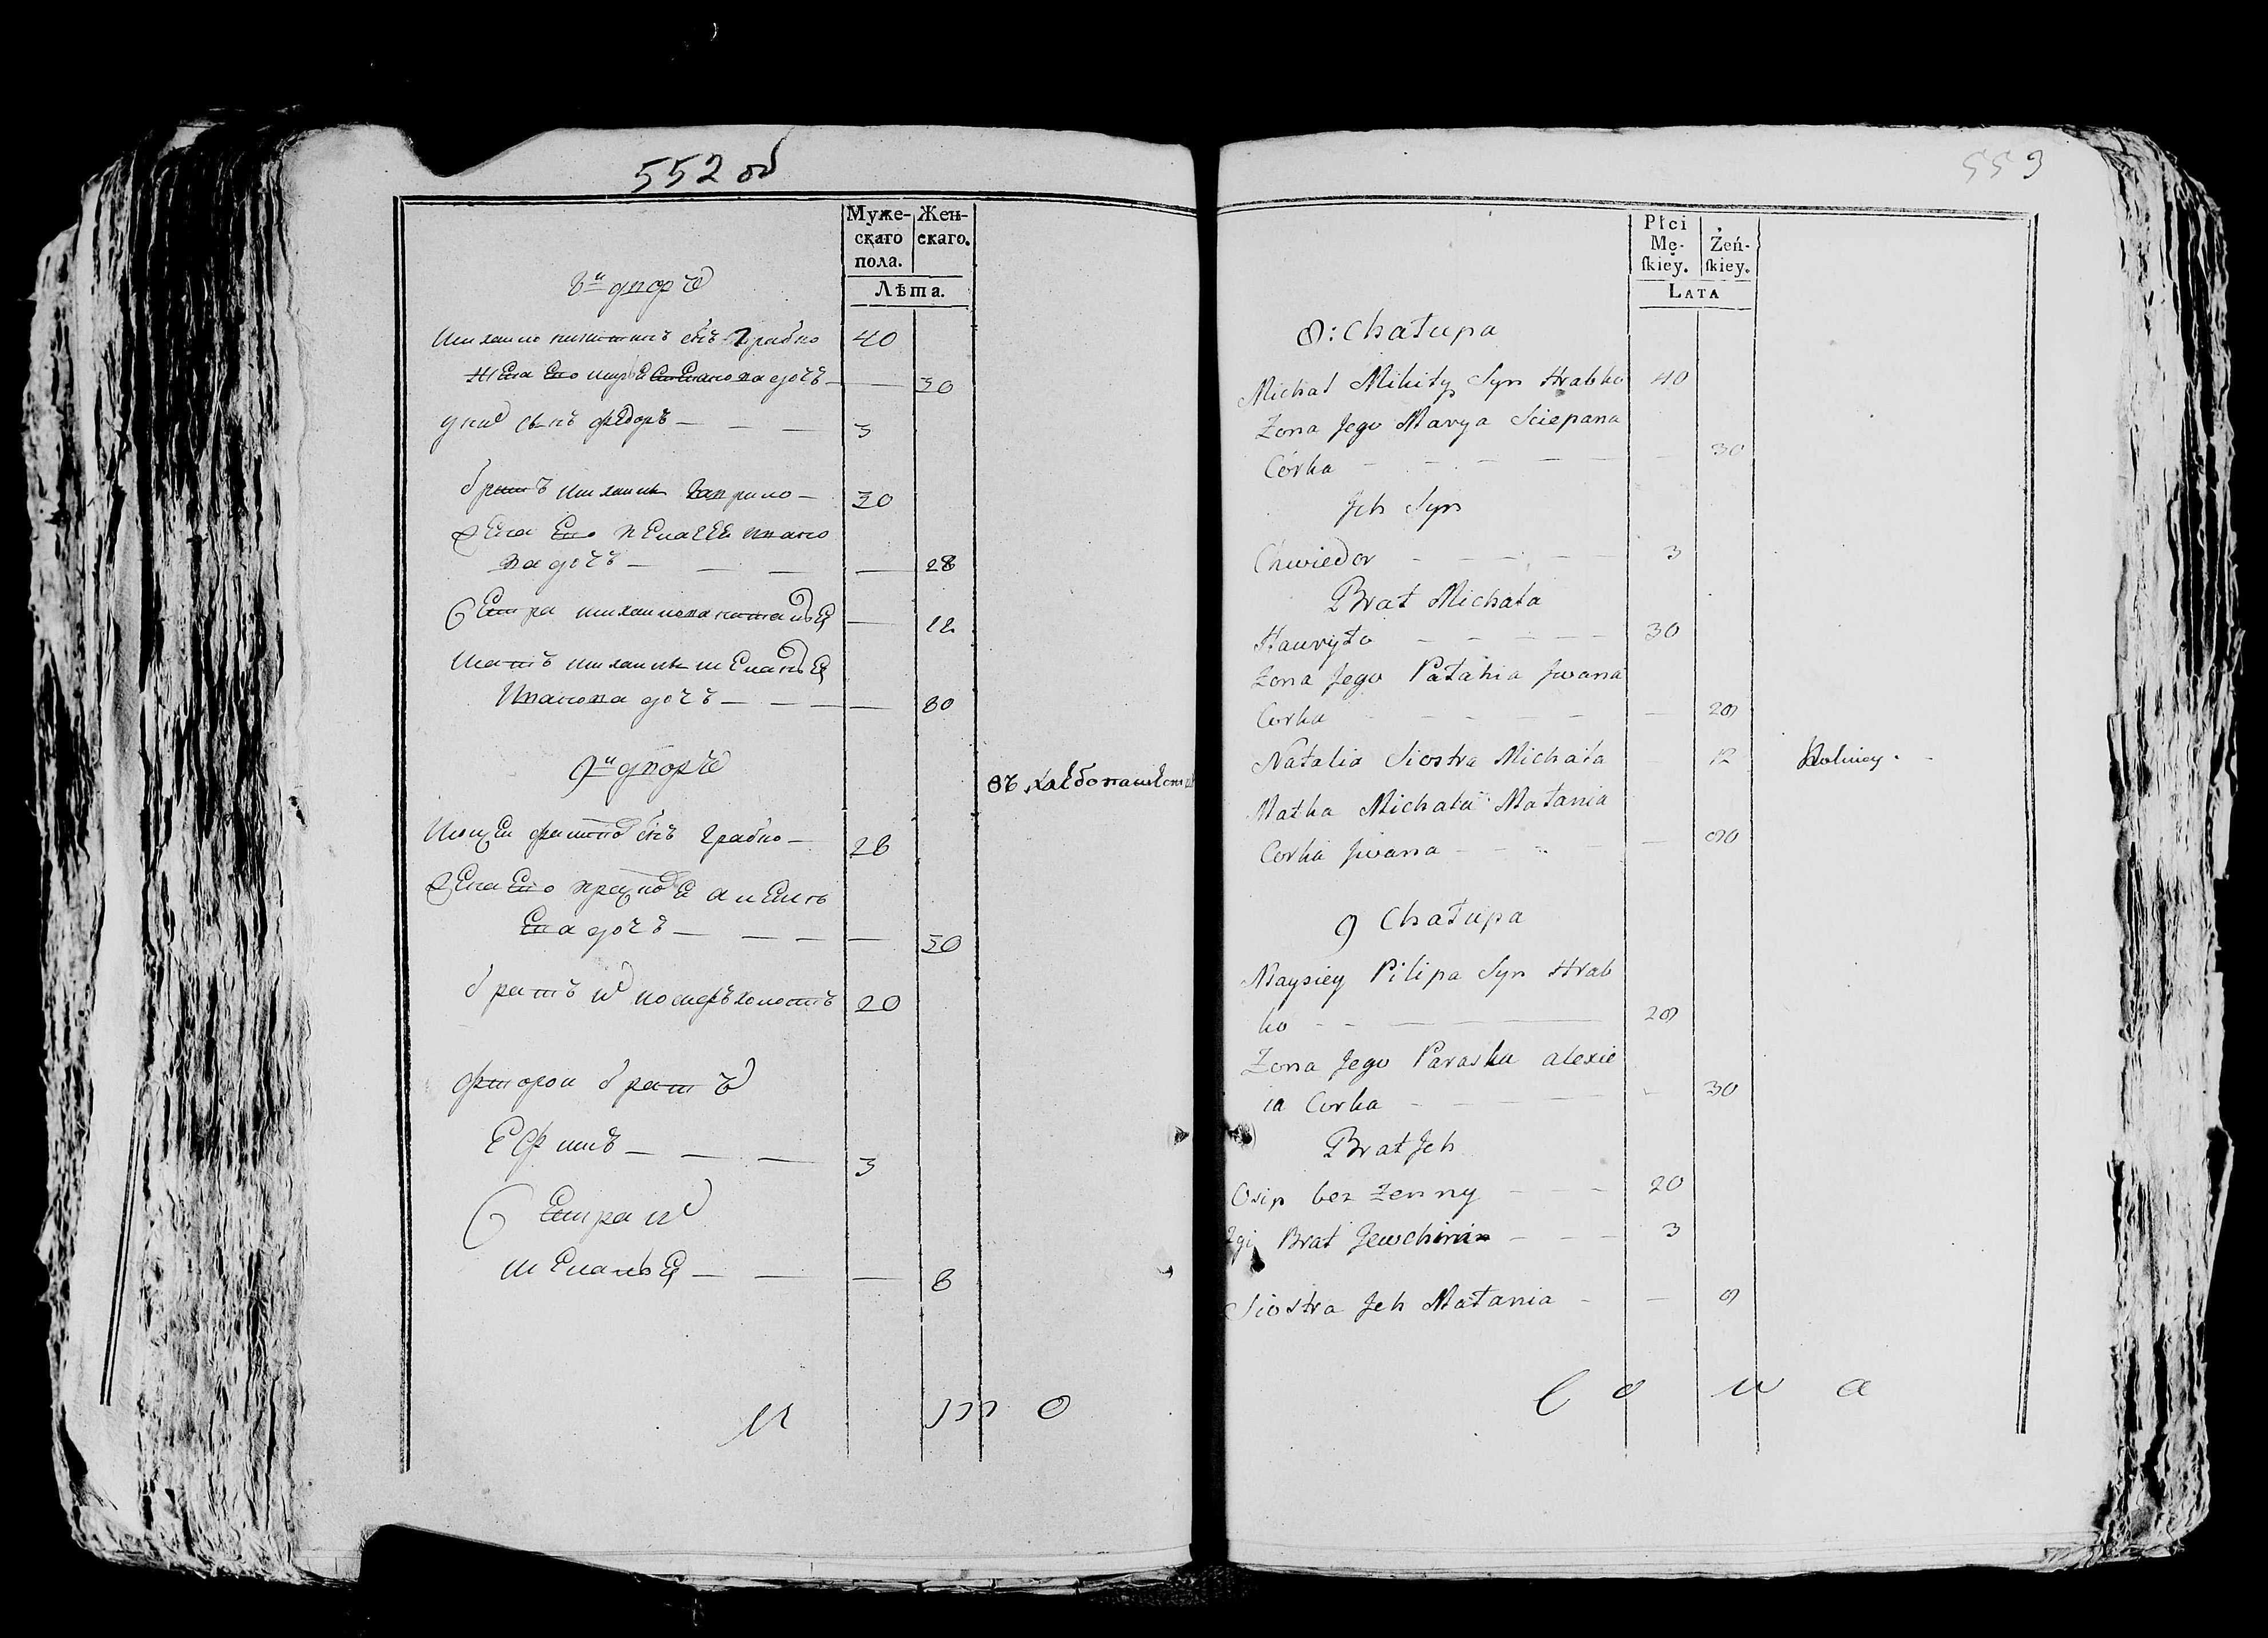 552 об
Муже-
скаго
пола.
Жен-
скаго.
Лѣта.
8й дворъ
Михаило Никитинъ снъ Грабко 40
жена его Маръя Степанова дочъ — 30
у них сынъ Федоръ — — — 3
братъ Михаила Гаврило — 30
жена его Пелагея Ивано
ва дочъ — — — — 28
Сестра Михаилова Наталья — 12
Мать Михаила Меланья
Иванова дочъ — — — — 80
9й дворъ
въ хлебопашест
Моисеи Филипов снъ Грабко — 28
жена его Прасковя Алексѣ
ева дочъ — — — — 30
братъ их Иосифъ холостъ 20
Фторои братъ
Ефимъ — — — 3
Сестра их
Меланья — — — 8
И т о
553
Płci
Mę-
ſkiey.
Żeń-
ſkiey.
LATA
8: Chałupa
Michał Mikity Syn Hrabko 40
Zona Jego Marya Sciepana
Córka — — — — — 30
Jch Syn
Chwiedor — — — — 3
Brat Michała
Hauryło — — — — 30
Zona Jego Pałahia Jwana
Corka — — — — — 28
Natalia Siostra Michała — 12 Rolniey.
Matka Michała Małania
Corka Jwana — — — — 80
9 Chałupa
Maysiey Pilipa Syn Hrab
ko — — — — 28
Zona Jego Paraska alexie
ia Corka — — — — 30
Brat Jch
Osip bez Zenny — — — 20
2gi Brat Jewchim — — — 3
Siostra Jch Małania — — 8